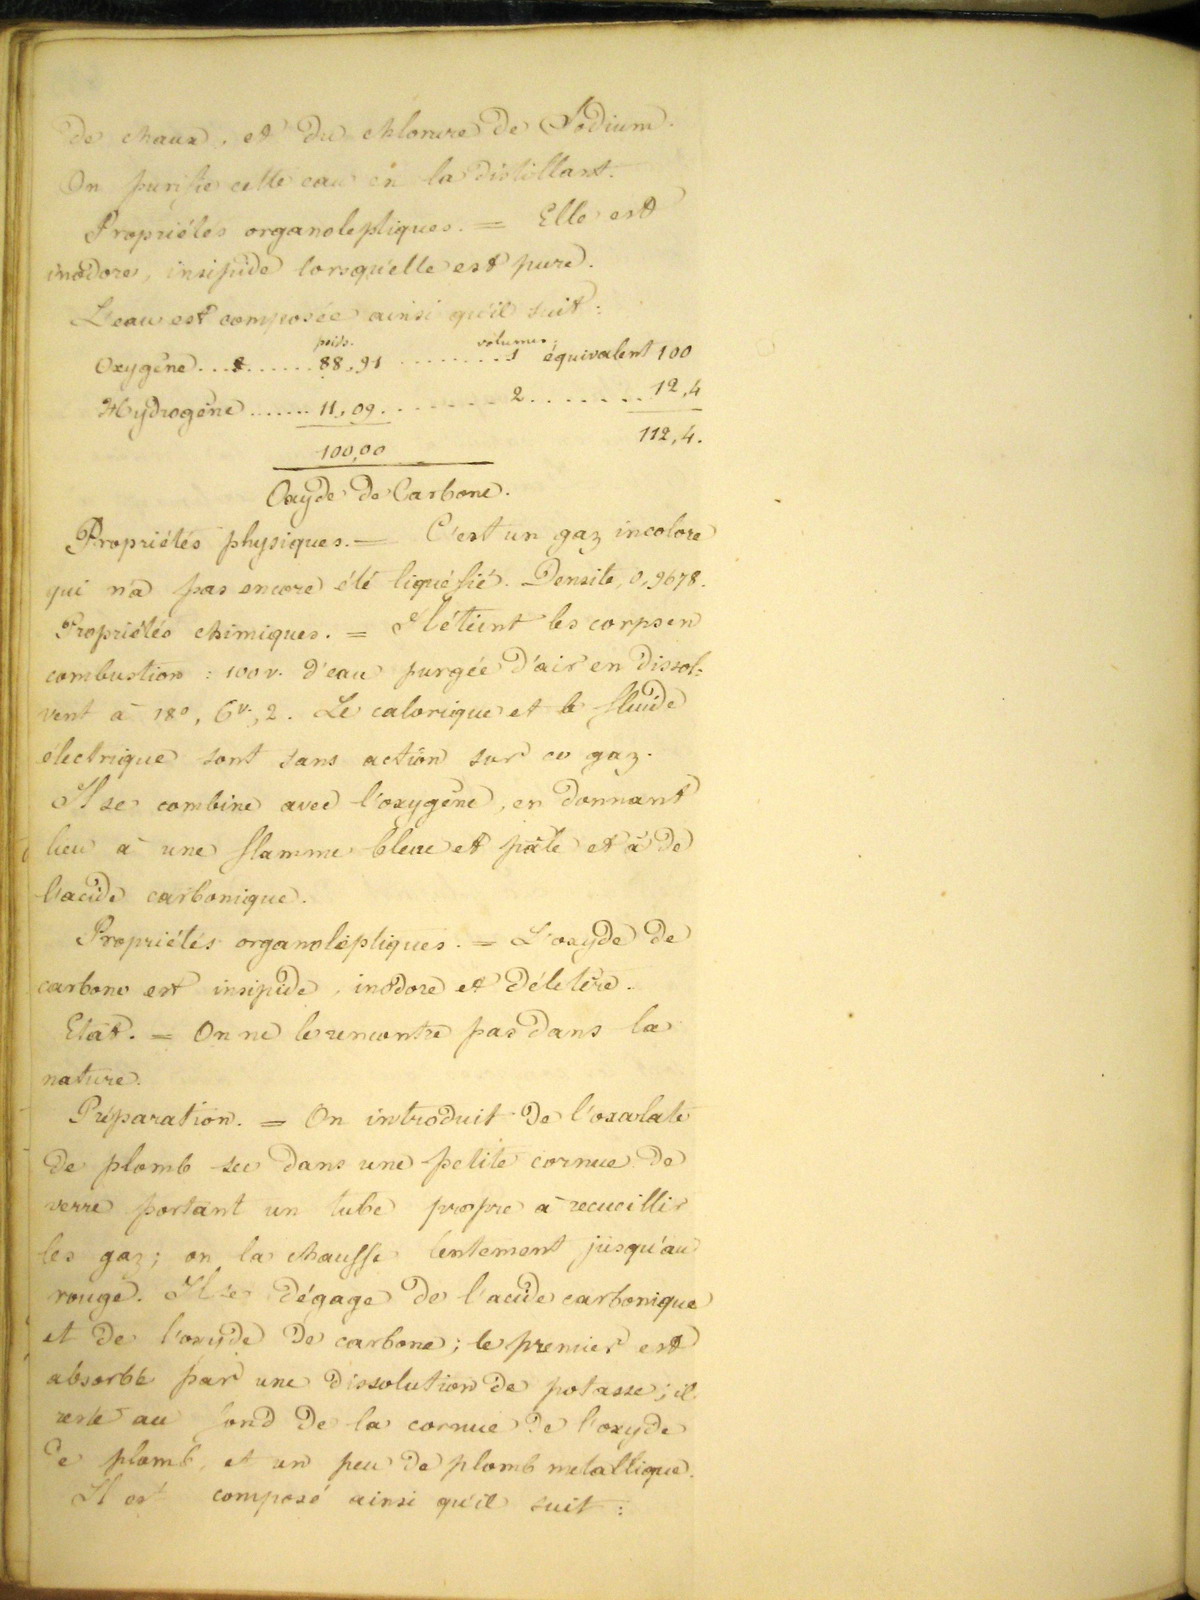 de chaux, et du chlorure de Sodium.
On purifie cette eau en la distillant.
Propriétés organoleptiques. = Elle est
inodore, insipide lorsqu'elle est pure.
L'eau est composée ainsi qu'il suit :
poids. volumes.
Oxygène ......... 88,91 ........ 1 équivalent 100
Hydrogène ...... 11,09 ........ 2 ........ 12,4
100,00 112,4.
Oxyde de Carbone.
Propriétés physiques. = C'est un gaz incolore
qui n'a pas encore été liquéfié. Densite, 0,9678.
Propriétés chimiques. = Il éteint les corps en
combustion : 100 v. d'eau purgée d'air en dissol-
vent à 18°, 6v.,2. Le calorique et le fluide
électrique sont sans action sur ce gaz.
Il se combine avec l'oxygène, en donnant
lieu à une flamme bleue et pâle et à de
l'acide carbonique.
Propriétés organoleptiques. = L'oxyde de
carbone est insipide, inodore et délétère.
Etat. = On ne le rencontre pas dans la
nature.
Préparation. = On introduit de l'oxalate
de plomb sec dans une petite cornue de
verre portant un tube propre à recueillir
les gaz ; on la chauffe lentement jusqu'au
rouge. Il se dégage de l'acide carbonique
et de l'oxyde de carbone ; le premier est
absorbé par une dissolution de potasse ; il
reste au fond de la cornue de l'oxyde
de plomb, et un peu de plomb metallique.
Il est composé ainsi qu'il suit :